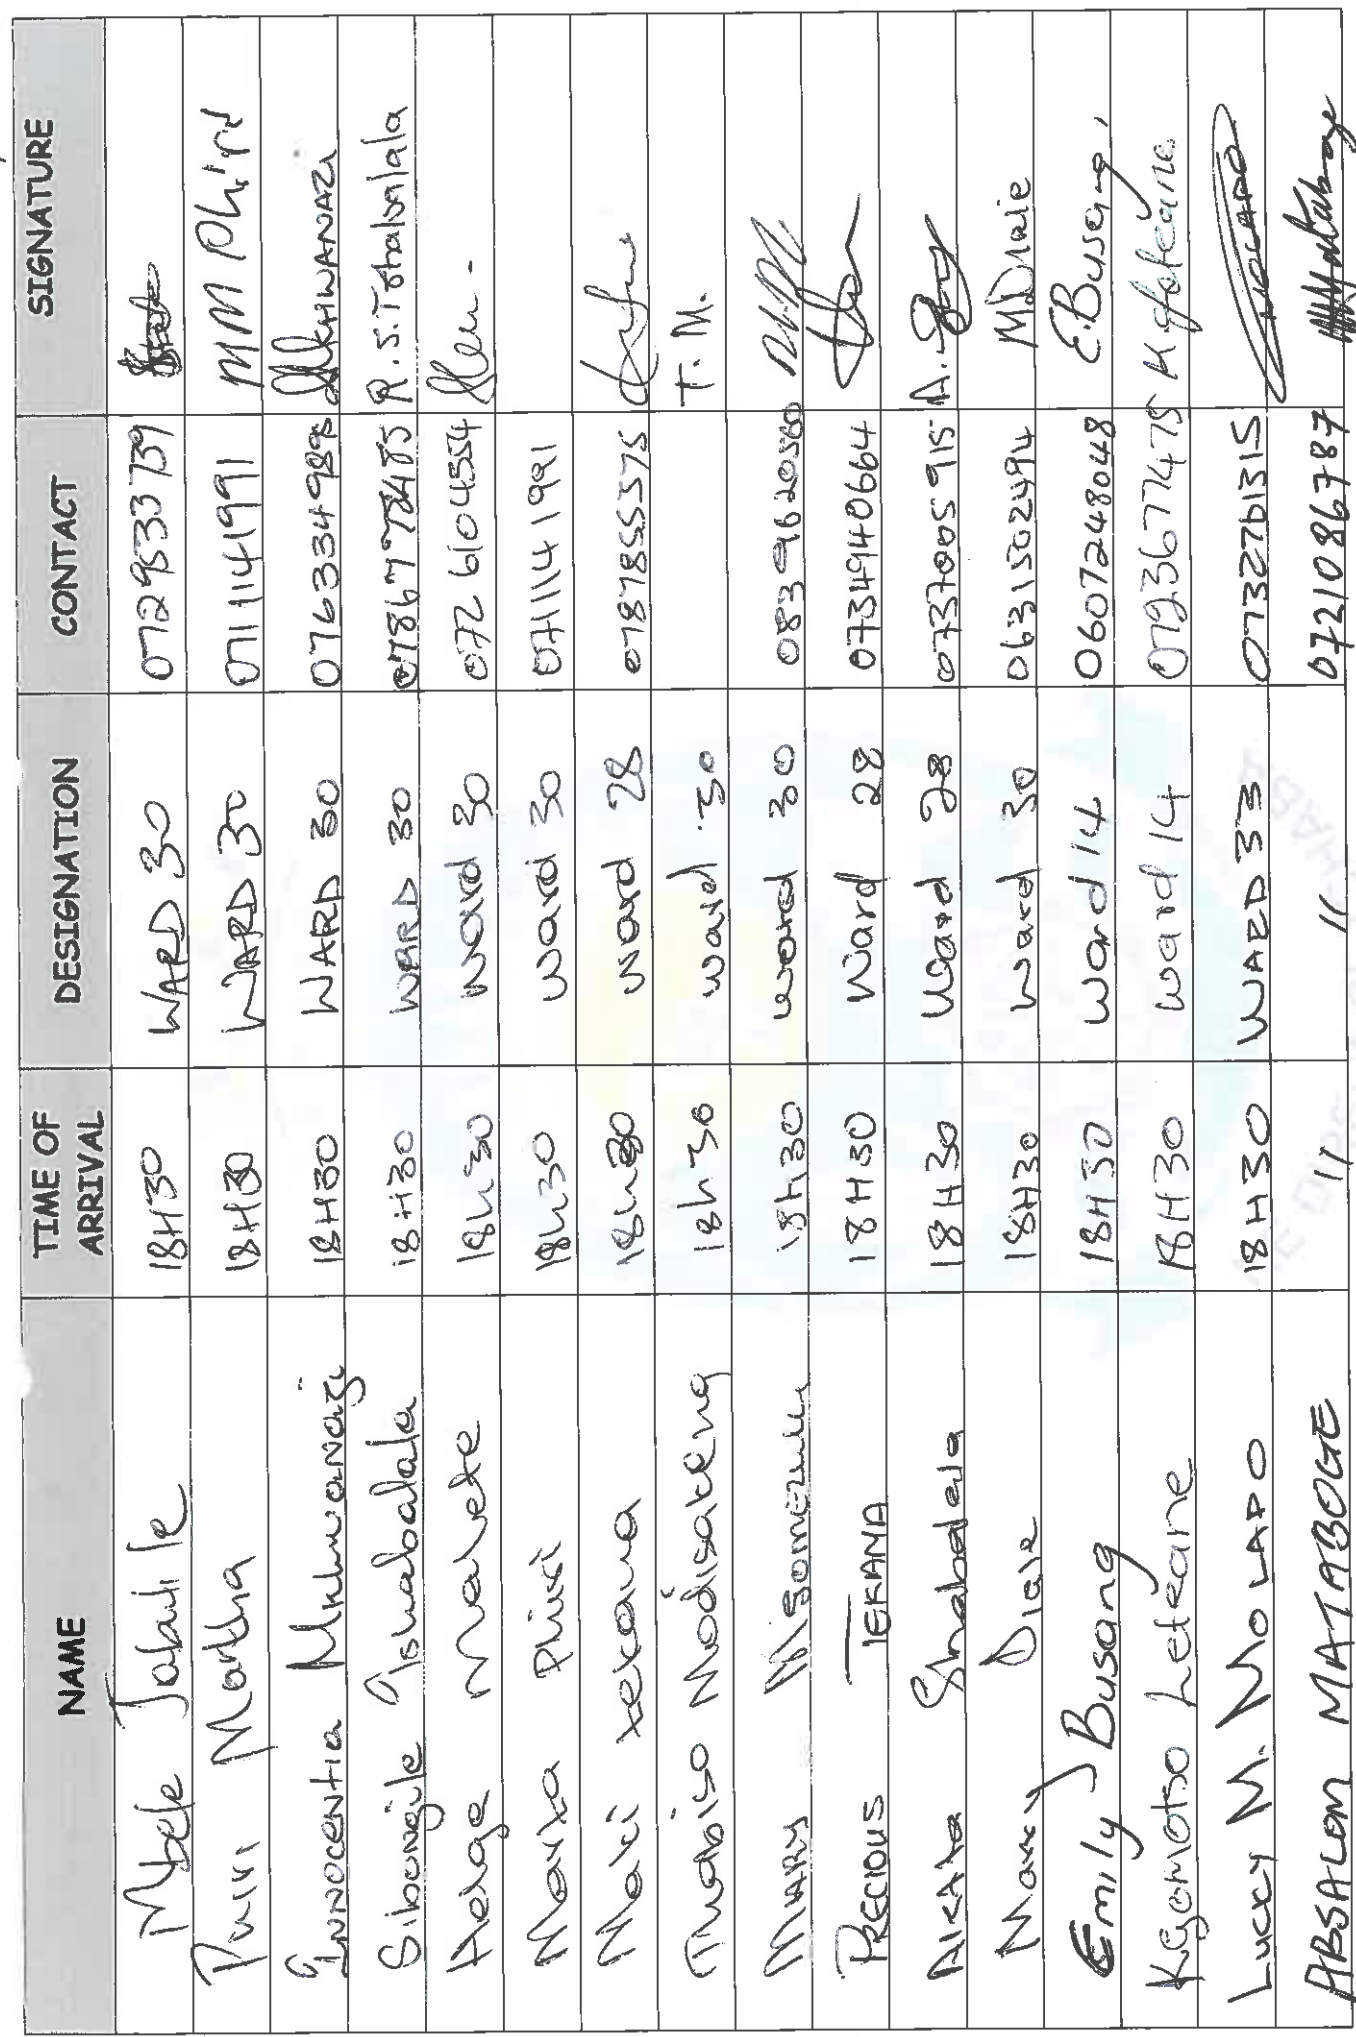 NAME TIME OF ARRIVAL DESIGNATION CONTACT SIGNATURE
Mbele Tabutile 18H30 WARD 30 0729533739
Phiri Martha 18H30 WARD 30 0711141991 MM Phiri
INNOCENTIA Mkhwanazi 18H30 WARD 30 0763334989 MKHWANAZI
Sibongile Tshabalala 18H30 WARD 30 R.S.Tshabalala
Helga Malete 18h30 Ward 30 072 6104554
Marta Phiri 18h30 Ward 30 0711141991
Maki xekana 18h30 Ward 28 0787855375
Thabiso Modisakeng 18h30 ward 30 T.M.
MARY Msomezulu 18h30 ward 30 M.M
PRECIOUS TEKANA 18H30 Ward 28 0734940664
Shabalala 18H30 Ward 28 0737005915
Mary Diale 18H30 Ward 30 0631502494 M Diale
Emily Busang 18H30 Ward 14 0607248048 E.Busang
Kgomotso Lefeane 18H30 Ward 14 0723677475
LUCKY M. MOLAPO 18H30 WARD 33 0732701315 MOLAPO
ABSALOM MATABOGE 11 11 0721086787